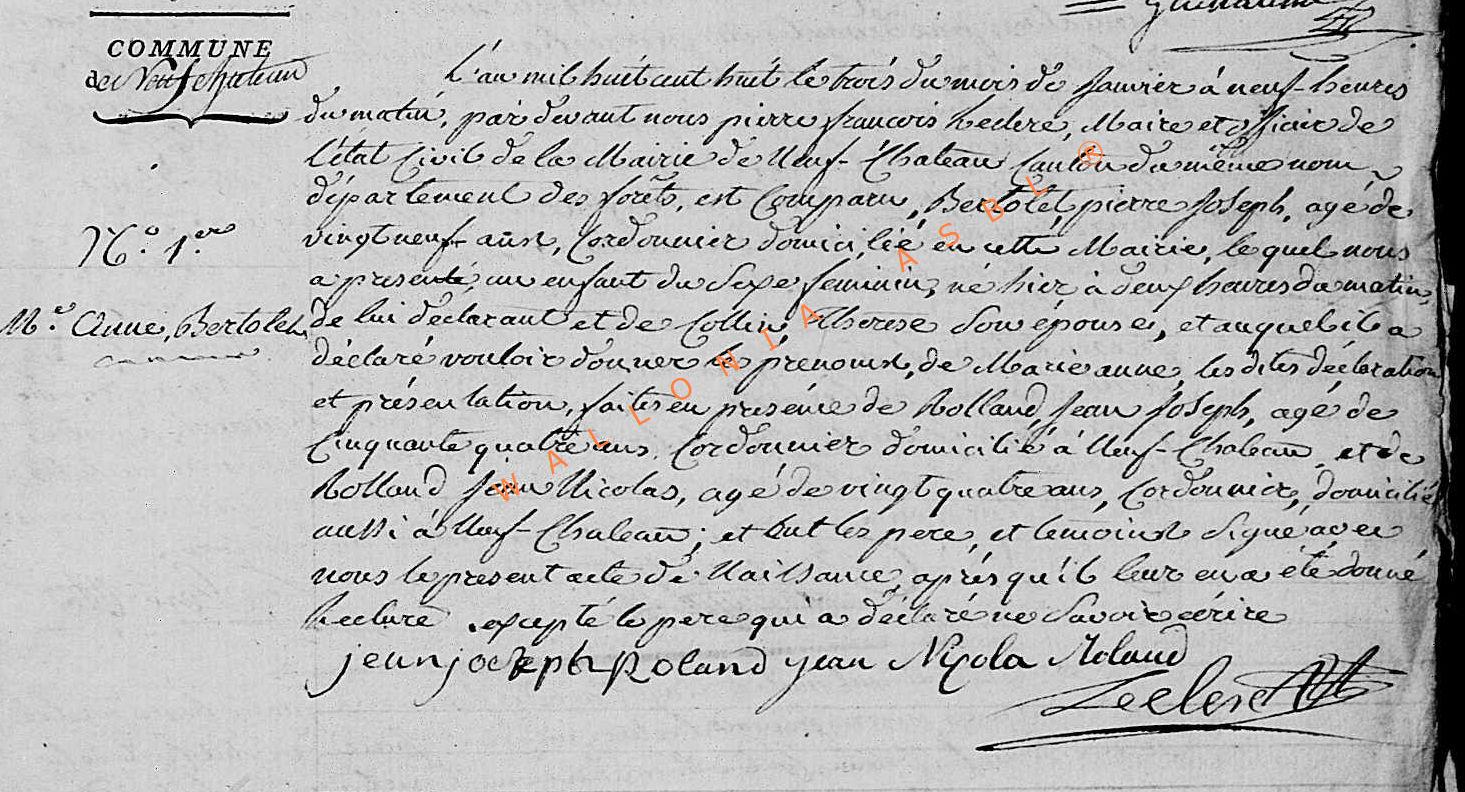 Guillaume
COMMUNE
de Neufchateau
L'an mil huit cent huit le trois du mois de Janvier à neuf-heures
du matin, par devant nous pierre francois Leclere, Maire et officier de
l'état Civil de la Mairie de Neuf-Chateau Canton du même nom
département des forêts, est Comparu, Bertolet, pierre Joseph, agé de
N.º 1.er
vingt neuf ans, Cordonnier domicilié en cette Mairie, le quel nous
a presenté, un enfant du Sexe feminin, né hier à deux heures du matin
M.e Anne, Bertolet
de lui déclarant et de Collin Therese Son épouse, et auquel il a
déclaré vouloir donner le prenoms, de Marie anne, les dites déclaration
et présentation, faites en presence de Rolland, Jean Joseph, agé de
Cinquante quatre ans, Cordonnier domicilié à Neuf-Chateau, et de
Rolland Jean Nicolas, agé de vingt quatre ans, Cordonnier, domicilié
aussi à Neuf-Chateau; et ont les pere, et temoins Signé avec
nous le present acte de Naissance, après qu'il leur en a été donné
Lecture excepté le pere qui a déclaré ne Savoir écrire
jean joseph Roland jean Nicola Roland
Leclere
WALLONIA ASBL ®